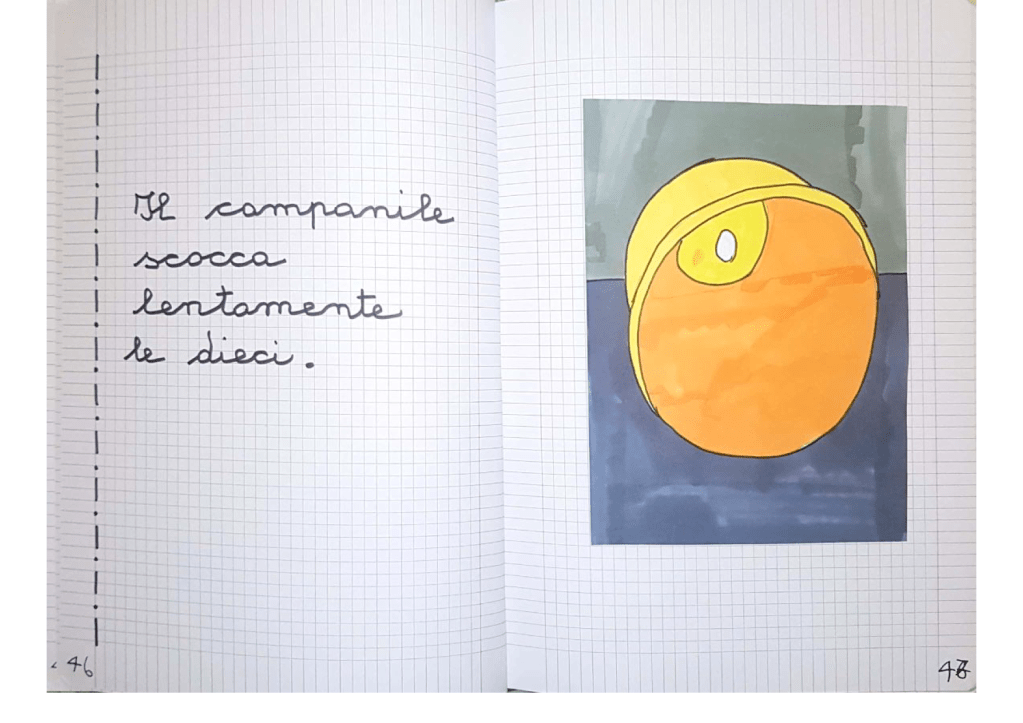 Il campanile
scocca
lentamente
le dieci.
46